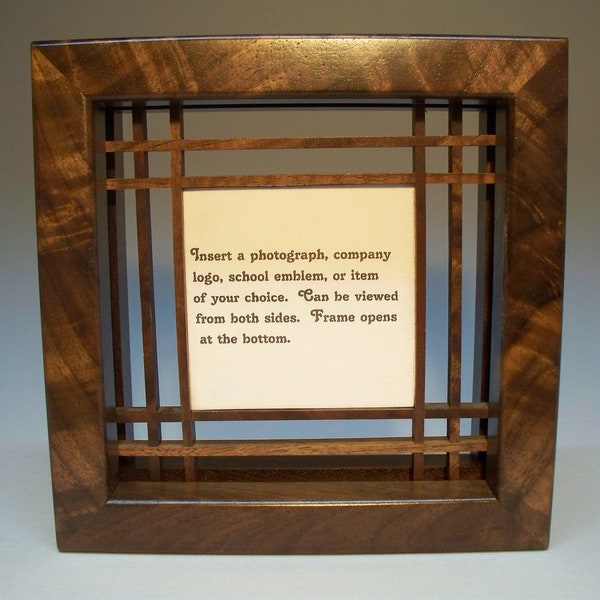 Insert a photograph, company
logo, school emblem, or item
of your choice. Can be viewed
from both sides. Frame opens
at the bottom.